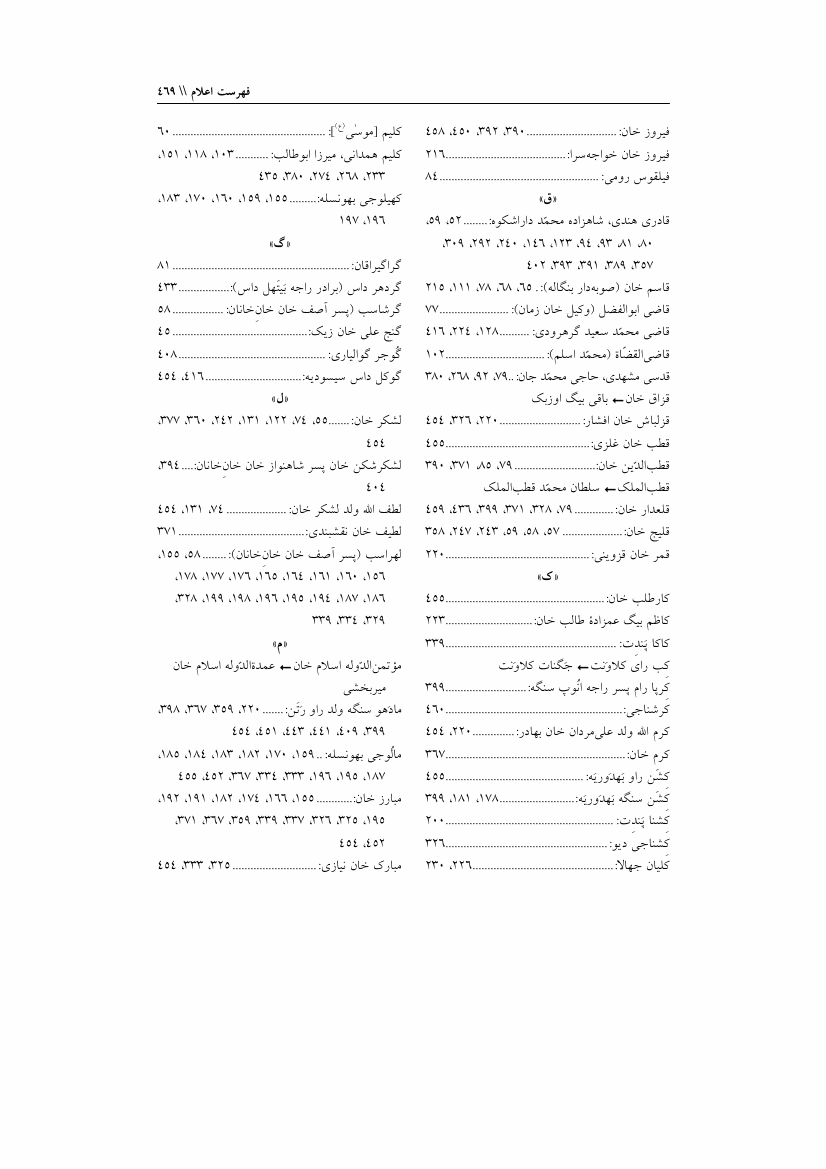 فهرست اعلام \\ ٤٦٩
فیروز خان: .............................. ۳۹۰، ۳۹۲، ٤٥٠، ٤٥٨
فیروز خان خواجه‌سرا: ........................................ ۲۱٦
فیلقوس رومی: ..................................................... ۸٤
«ق»
قادری هندی، شاهزاده محمّد داراشکوه: ........ ٥۲، ٥۹،
۸۰، ۸۱، ۹۳، ۹٤، ۱۲۳، ۱٤٦، ۲٤۰، ۲۹۲، ۳۰۹،
۳٥۷، ۳۸۹، ۳۹۱، ۳۹۳، ٤۰۲
قاسم خان (صوبه‌دار بنگاله): . ٦٥، ٦۸، ۷۸، ۱۱۱، ۲۱٥
قاضی ابوالفضل (وکیل خان زمان): ....................... ۷۷
قاضی محمّد سعید گرهرودی: .......... ۱۲۸، ۲۲٤، ٤۱٦
قاضی‌القضّاة (محمّد اسلم): ................................. ۱۰۲
قدسی مشهدی، حاجی محمّد جان: .. ۷۹، ۹۲، ۲٦۸، ۳۸۰
قزاق خان ← باقی بیگ اوزبک
قزلباش خان افشار: ........................... ۲۲۰، ۳۲٦، ٤٥٤
قطب خان غلزی: ................................................ ٤٥٥
قطب‌الدّین خان: ........................... ۷۹، ۸٥، ۳۷۱، ۳۹۰
قطب‌الملک ← سلطان محمّد قطب‌الملک
قلعدار خان: ............. ۷۹، ۳۲۸، ۳۷۱، ۳۹۹، ٤۳٦، ٤٥۹
قلیج خان: .................... ٥۷، ٥۸، ٥۹، ۲٤۳، ۲٤۷، ۳٥۸
قمر خان قزوینی: ................................................ ۲۲۰
«ک»
کارطلب خان: ..................................................... ٤٥٥
کاظم بیگ عمزادهٔ طالب خان: ............................. ۲۲۳
کاکا پَندِت: ......................................................... ۳۳۹
کِب رای کلاوَنت ← جَگنات کلاوَنت
کِرپا رام پسر راجه انُوپ سنگه: ........................... ۳۹۹
کَرشناجی: ........................................................... ٤٦۰
کرم الله ولد علی‌مردان خان بهادر: .............. ۲۲۰، ٤٥٤
کرم خان: ............................................................ ۳٦۷
کِشَن راو بَهدَوریَه: .............................................. ٤٥٥
کِشَن سنگه بَهدَوریَه: ......................... ۱۷۸، ۱۸۱، ۳۹۹
کِشنا پَندِت: ........................................................ ۲۰۰
کِشناجی دیو: ...................................................... ۳۲٦
کَلیان جهالا: ............................................... ۲۲٦، ۲۳۰
کلیم [موسٰی(ع)]: ................................................... ٦۰
کلیم همدانی، میرزا ابوطالب: ........... ۱۰۳، ۱۱۸، ۱٥۱،
۲۳۳، ۲٦۸، ۲۷٤، ۳۸۰، ٤۳٥
کهیلوجی بهونسله: ......... ۱٥٥، ۱٥۹، ۱٦۰، ۱۷۰، ۱۸۳،
۱۹٦، ۱۹۷
«گ»
گراگیراقان: ........................................................... ۸۱
گردهر داس (برادر راجه بَیتَهل داس): ................. ٤۳۳
گرشاسب (پسر آصف خان خانِ‌خانان: ................. ٥۸
گنج علی خان زیک: ............................................. ٤٥
گُوجر گوالیاری: ................................................. ٤۰۸
گوکل داس سیسودیه: ................................ ٤۱٦، ٤٥٤
«ل»
لشکر خان: ....... ٥٥، ۷٤، ۱۲۲، ۱۳۱، ۲٤۲، ۳٦۰، ۳۷۷،
٤٥٤
لشکرشکن خان پسر شاهنواز خان خانِ‌خانان: .... ۳۹٤،
٤۰٤
لطف الله ولد لشکر خان: .................... ۷٤، ۱۳۱، ٤٥٤
لطیف خان نقشبندی: .......................................... ۳۷۱
لهراسب (پسر آصف خان خانِ‌خانان): ........ ٥۸، ۱٥٥،
۱٥٦، ۱٦۰، ۱٦۱، ۱٦٤، ۱٦٥، ۱۷٦، ۱۷۷، ۱۷۸،
۱۸٦، ۱۸۷، ۱۹٤، ۱۹٥، ۱۹٦، ۱۹۸، ۱۹۹، ۳۲۸،
۳۲۹، ۳۳٤، ۳۳۹
«م»
مؤتمن‌الدّوله اسلام خان ← عمدةالدّوله اسلام خان
میربخشی
مادَهو سنگه ولد راو رَتَن: ....... ۲۲۰، ۳٥۹، ۳٦۷، ۳۹۸،
۳۹۹، ٤۰۹، ٤٤۱، ٤٤۳، ٤٥۱، ٤٥٤
مالُوجی بهونسله: .. ۱٥۹، ۱۷۰، ۱۸۲، ۱۸۳، ۱۸٤، ۱۸٥،
۱۸۷، ۱۹٥، ۱۹٦، ۳۳۳، ۳۳٤، ۳٦۷، ٤٥۲، ٤٥٥
مبارز خان: ............ ۱٥٥، ۱٦٦، ۱۷٤، ۱۸۲، ۱۹۱، ۱۹۲،
۱۹٥، ۳۲٥، ۳۲٦، ۳۳۷، ۳۳۹، ۳٥۹، ۳٦۷، ۳۷۱،
٤٥۲، ٤٥٤
مبارک خان نیازی: ............................ ۳۲٥، ۳۳۳، ٤٥٤